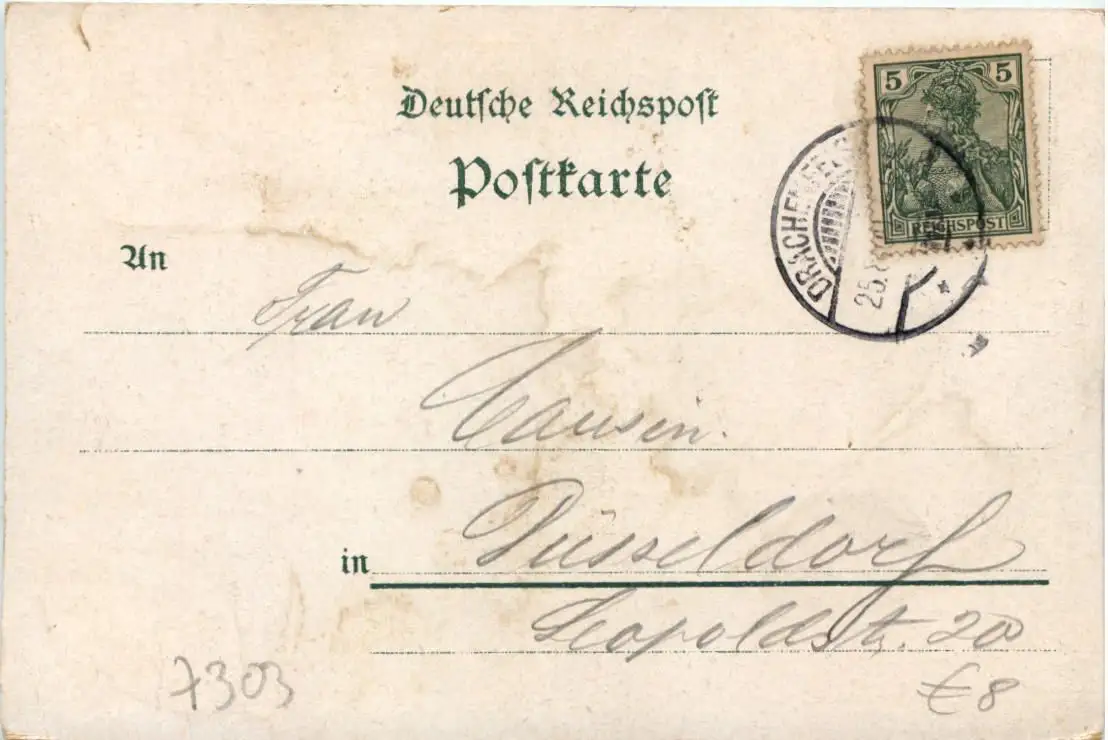 Deutsche Reichspost
Postkarte
5 5
REICHSPOST
DRACHENFELS
25.
An
Frau
Causin.
in Düsseldorf
Leopoldstr. 20
7303
€8